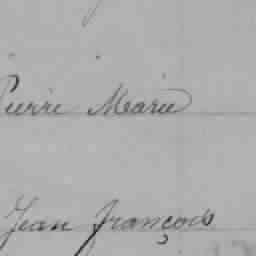 Pierre Marie
Jean françois